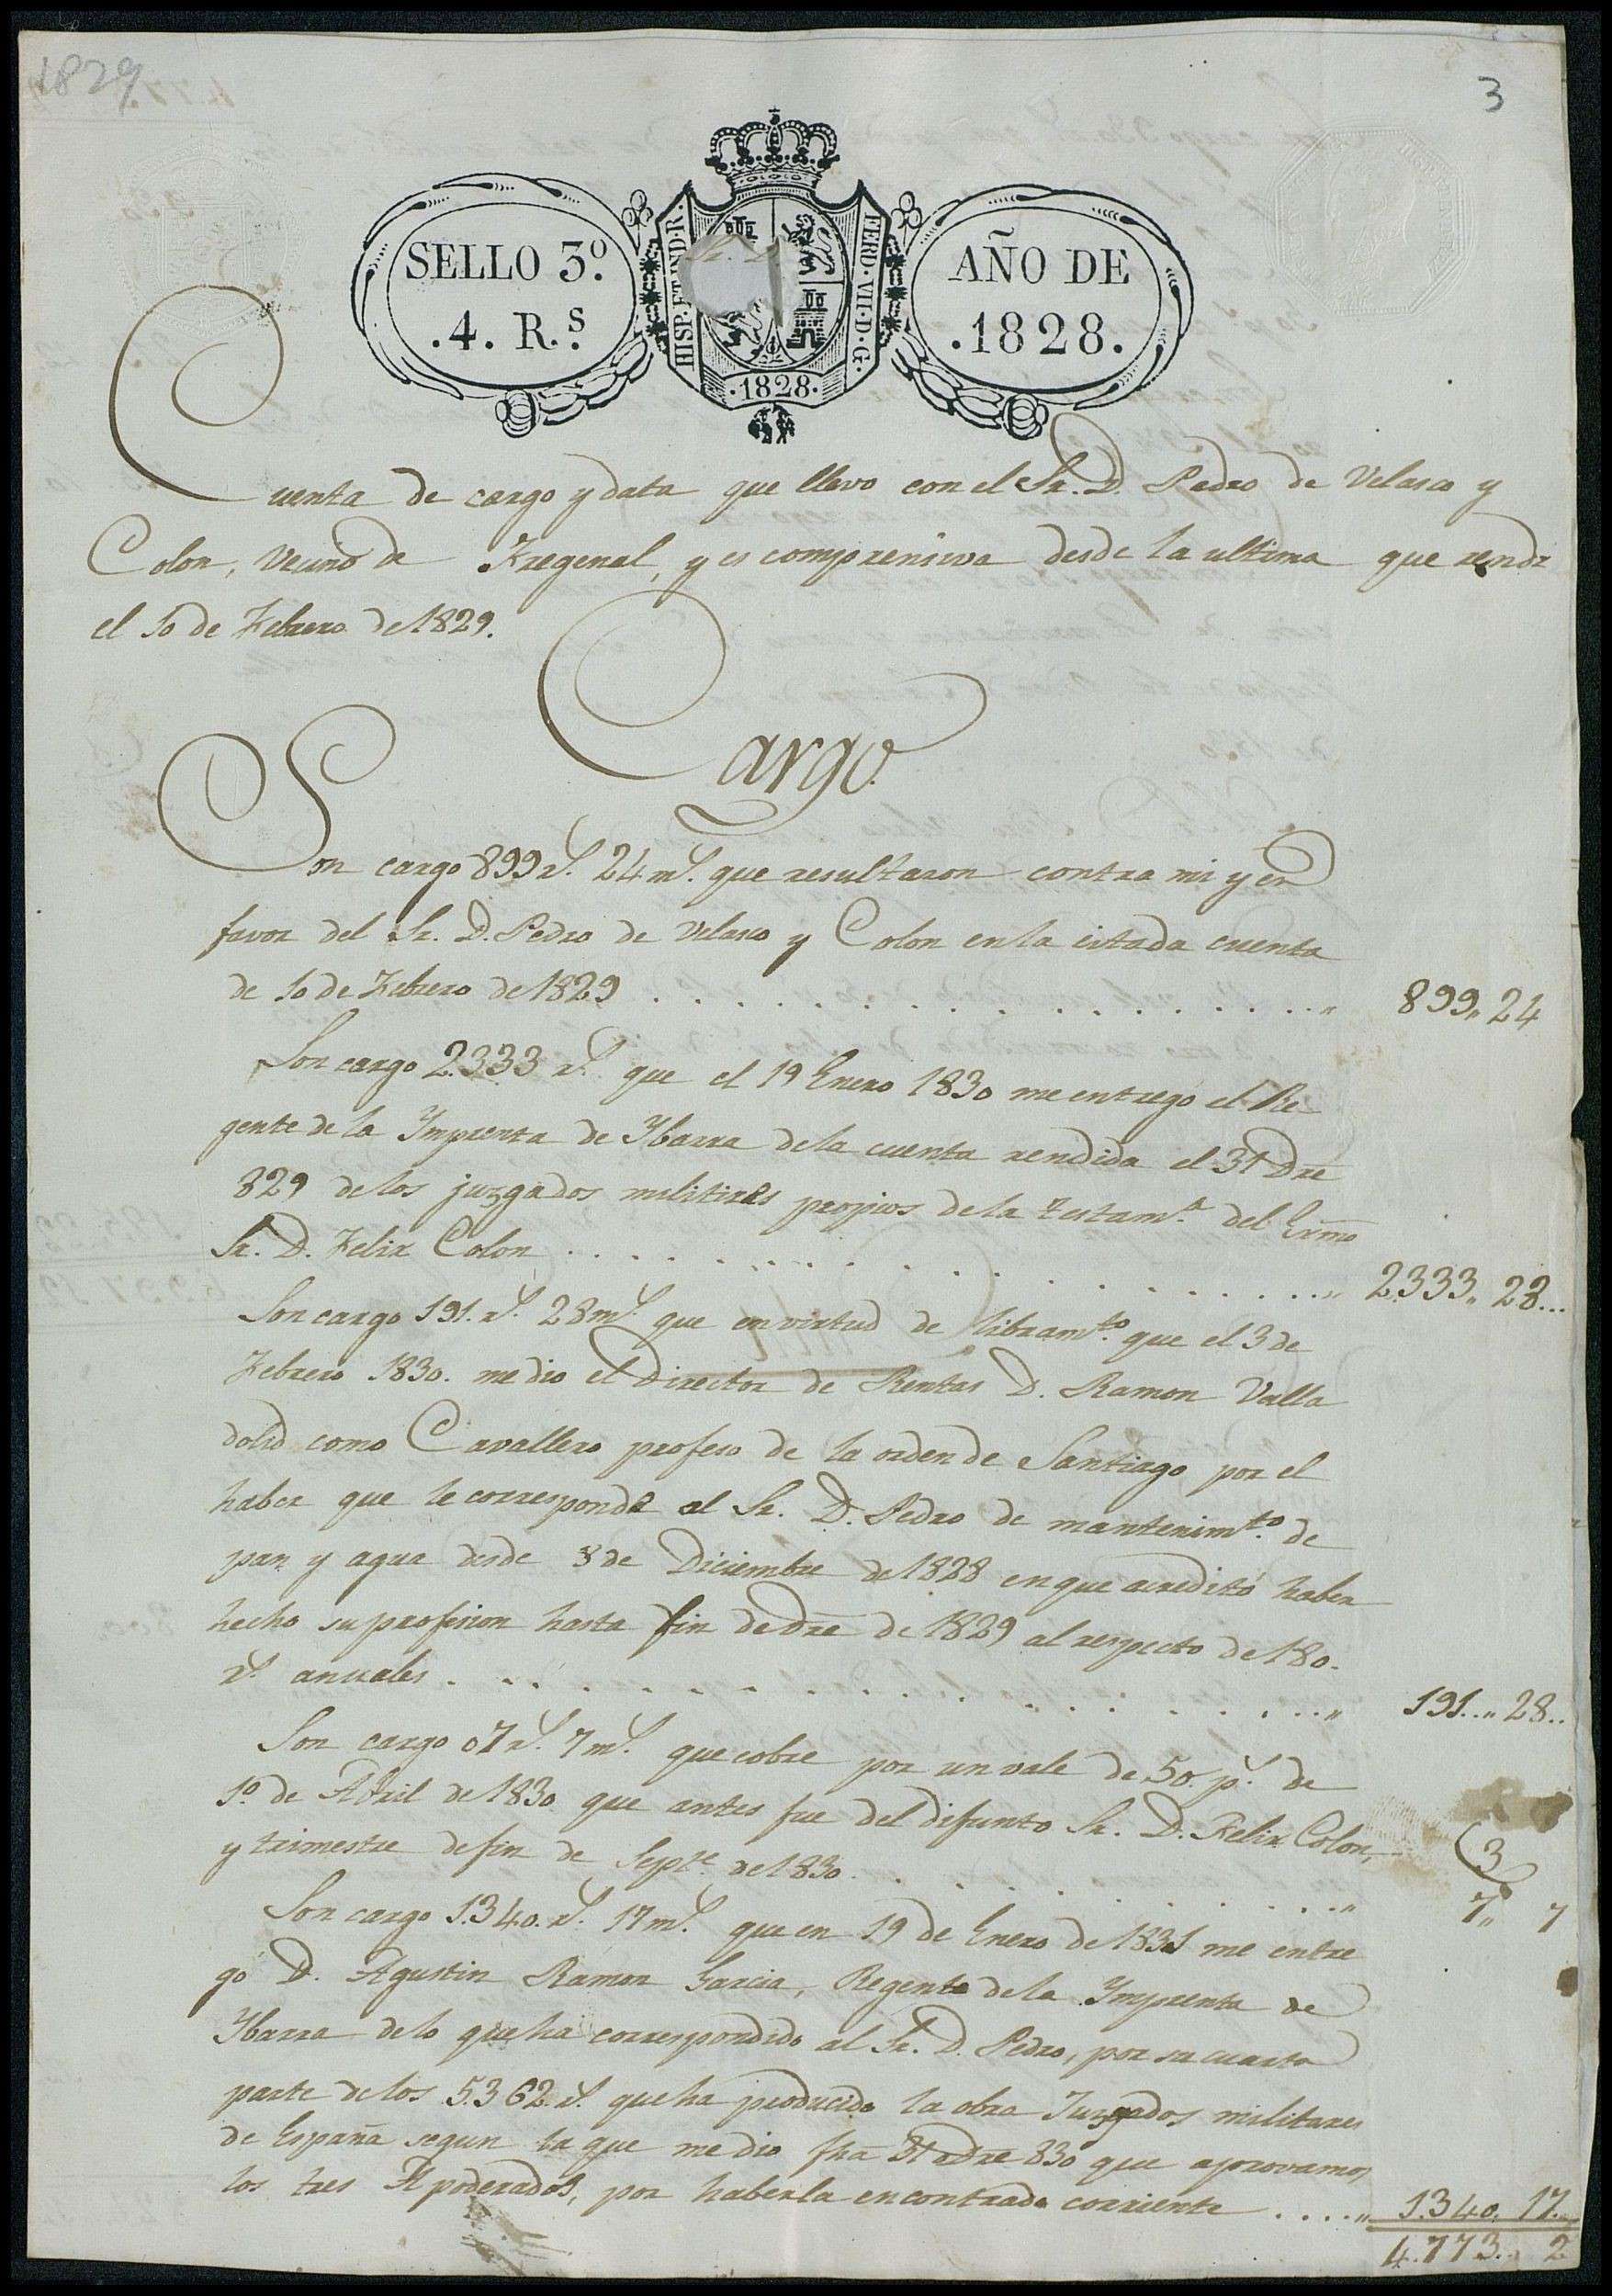 1829
3
SELLO 3º.
.4. R.s
HISP. ET IND. R.
FERD. VII. D. G.
.1828.
AÑO DE
.1828.
Cuenta de cargo y data que llevo con el Sr. D. Pedro de Velasco y
Colon, vecino de Fregenal, y es comprensiva desde la ultima que rendi
el 10 de Febrero de 1829.
Cargo.
Son cargo 899 rs. 24 ms. que resultaron contra mi y en
favor del Sr. D. Pedro de Velasco y Colon en la citada cuenta
de 10 de Febrero de 1829 . . . . . . . . . . . . . . . . „ 899„ 24
Son cargo 2.333 rs. que el 19 Enero 1830 me entregó el Re
gente de la Ymprenta de Ybarra de la cuenta rendida el 31 Dre
829 de los juzgados militires propios de la Testam.a del Exmo
Sr. D. Felix Colon . . . . . . . . . . . . . . . . . „ 2.333„ 28...
Son cargo 191. rs. 28 ms. que en virtud de libramto. que el 3 de
Febrero 1830. me dio el Director de Rentas D. Ramon Valla
dolid como Cavallero profeso de la orden de Santiago por el
haber que le corresponde al Sr. D. Pedro de mantenimto. de
pan y agua desde 8 de Diciembre de 1828 en que acreditó haber
hecho su profesion hasta fin de dre de 1829 al respecto de 180.
rs. anuales . . . . . . . . . . . . . . . . . . . „ 191..„ 28..
Son cargo 07 rs. 7 ms. que cobre por un vale de 50. ps. de
1º. de Abril de 1830 que antes fue del difunto Sr. D. Felix Colon,
(3
y trimestre de fin de Septe. de 1830. . . . . . . . . . . . . „ 7„ 7
Son cargo 1.340. rs. 17 ms. que en 19 de Enero de 1831 me entre
gó D. Agustin Ramon Garcia, Regente de la Ymprenta de
Ybarra de lo que ha correspondido al Sr. D. Pedro, por su cuarta
parte de los 5.362. rs. que ha producido la obra Juzgados militares
de España segun la que me dio fha 31 dre 830 que aprovamos
los tres Apoderados, por haberla encontrado corriente ....„ 1.340. 17..
4.773.. 2